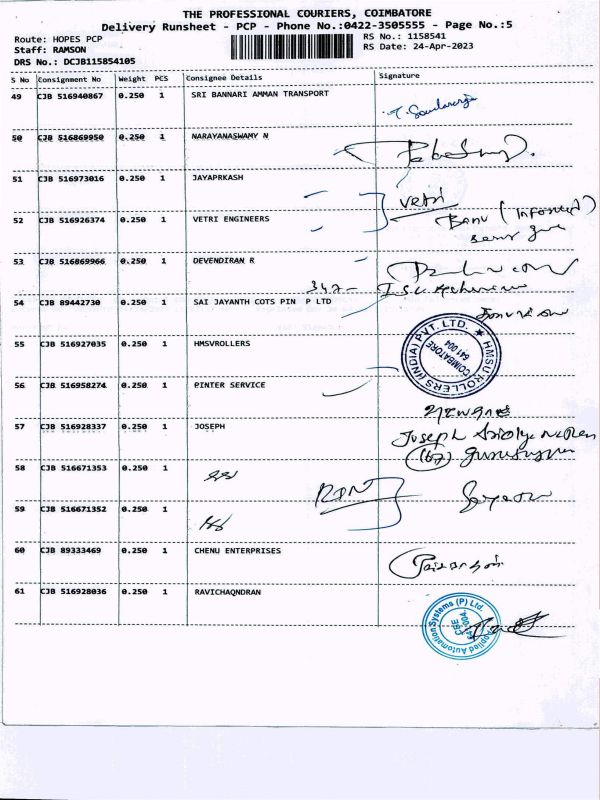 THE PROFESSIONAL COURIERS, COIMBATORE
Delivery Runsheet - PCP - Phone No.:0422-3505555 - Page No.:5
Route: HOPES PCP
RS No.: 1158541
Staff: RAMSON
RS Date: 24-Apr-2023
DRS No.: DCJB115854105
S No Consignment No Weight PCS Consignee Details Signature
49 CJB 516940867 0.250 1 SRI BANNARI AMMAN TRANSPORT
50 CJB 516869950 0.250 1 NARAYANASWAMY N
51 CJB 516973016 0.250 1 JAYAPRKASH
vetri
52 CJB 516926374 0.250 1 VETRI ENGINEERS
Banu
53 CJB 516869966 0.250 1 DEVENDIRAN R
347-
54 CJB 89442730 0.250 1 SAI JAYANTH COTS PIN P LTD
55 CJB 516927035 0.250 1 HMSVROLLERS
HMSU ROLLERS (INDIA) PVT. LTD. ★
COIMBATORE
641 004
56 CJB 516958274 0.250 1 PINTER SERVICE
57 CJB 516928337 0.250 1 JOSEPH
Joseph
(67)
58 CJB 516671353 0.250 1
59 CJB 516671352 0.250 1
60 CJB 89333469 0.250 1 CHENU ENTERPRISES
61 CJB 516928036 0.250 1 RAVICHAQNDRAN
Applied Automation Systems (P) Ltd.
CBE
641-004